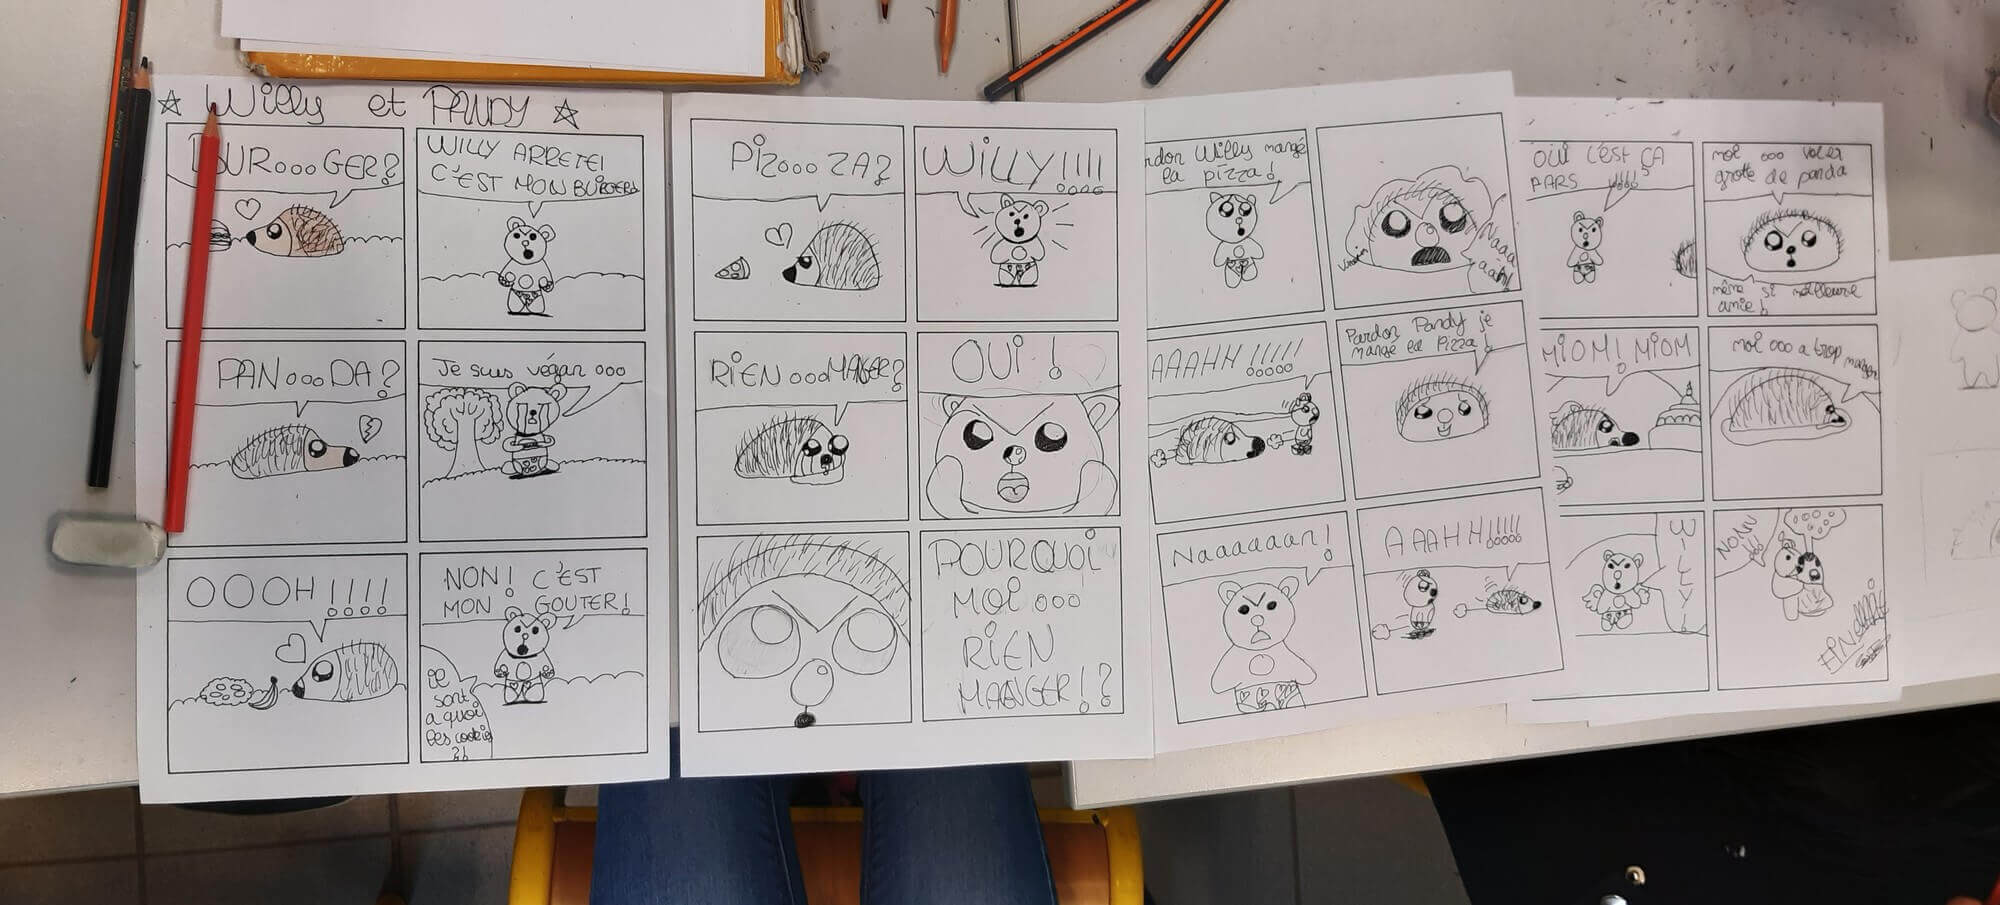 Willy et PANDY
BUR ooo GER?
WILLY ARRETE!
C'EST MON BURGER!
PAN ooo DA?
Je suis végan ooo
OOOH !!!!
NON! C'EST
MON GOUTER!
sont
a quoi
les cookies
?!
Pizooo ZA?
WiLLY!!!!
RIEN oooMANGER?
OUI !
POURQUOI
MOI ooo
RIEN
MANGER!?
rdon Willy mange
la pizza!
Naaa
aah!
AAAHH !!!!!
Pardon Pandy je
mange la Pizza!
Naaaaaan!
AAAHH!!!!!
OUI C'EST ÇA
PARS !!!!
moi ooo voler
grotte de panda
même si meilleure
amie!
MIOM! MIOM
moi ooo a trop manger
WILLY!
FIN